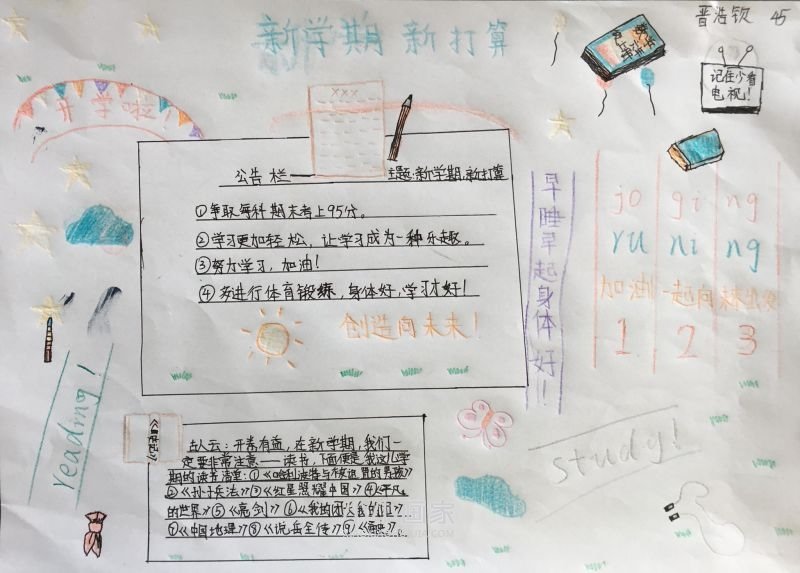 新学期 新打算
晋浩钦 45
开学啦!
记住少看
电视!
XXX
公告栏
主题:新学期,新打算
①争取每科期末考上95分。
②学习更加轻松,让学习成为一种乐趣。
③努力学习,加油!
④多进行体育锻炼,身体好,学习才好!
创造向未来!
早睡早起身体好!!
jo gi ng
ru ni ng
加油! 一起向
1 2 3
reading!
study!
古人云:开卷有益,在新学期,我们一
定要非常注意——读书,下面便是我这儿学
期的读书清单:①《哈利波特与被诅咒的
②《孙子兵法》③《红星照耀中国》④《平凡
的世界》⑤《亮剑》⑥《我的
⑦《中国地理》⑧《说岳全传》⑨